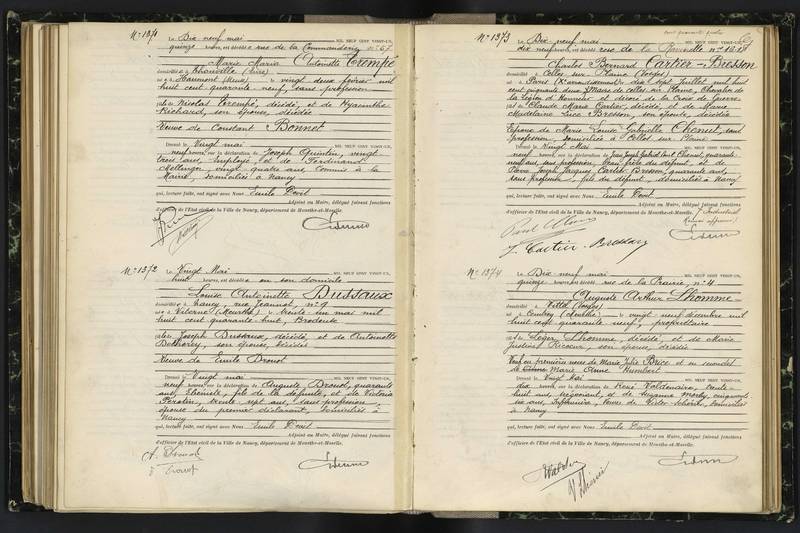 N° 1371 Dix neuf mai MIL NEUF CENT VINGT-UN,
quinze heures, est décédée rue de la Commanderie n° 67
Marie Maria Antoinette Trempé
domiciliée à Thonville
née à Haumont (Meuse) le vingt deux février mil
huit cent quarante neuf, sans profession
fille de Nicolas Trempé, décédé, et de Hyacinthe
Richard, son épouse, décédée
Veuve de Constant Bonnet
Dressé le Vingt mai MIL NEUF CENT VINGT-UN,
neuf heures, sur la déclaration de Joseph Quintin, vingt
trois ans, employé et de Ferdinand
vingt quatre ans, commis à la
Mairie, domiciliés à Nancy
qui, lecture faite, ont signé avec Nous Emile Devit
Adjoint au Maire, délégué faisant fonctions
d'officier de l'Etat civil de la Ville de Nancy, département de Meurthe-et-Moselle.
N° 1372 Le Vingt Mai MIL NEUF CENT VINGT-UN,
huit heures, est décédée en son domicile
Louise Antoinette Dussaux
domiciliée à Nancy, rue Jeannot, n° 9
née à Vitrimont (Meurthe) le trente un mai mil
huit cent quarante huit, Brodeuse
fille de Joseph Dussaux, décédé, et de Antoinette
son épouse, décédée
Veuve de Emile Drouot
Dressé le Vingt mai MIL NEUF CENT VINGT-UN,
neuf heures, sur la déclaration de Auguste Drouot, quarante
ans, Ebéniste, fils de la défunte, et de Victoria
trente sept ans, sans profession,
épouse du premier déclarant, domiciliés à
Nancy
qui, lecture faite, ont signé avec Nous Emile Devit
Adjoint au Maire, délégué faisant fonctions
d'officier de l'Etat civil de la Ville de Nancy, département de Meurthe-et-Moselle.
A. Drouot
V. Drouot
N° 1373 Le Dix neuf mai MIL NEUF CENT VINGT-UN,
dix neuf heures, est décédé rue de la Ravinelle n° 16-18
Charles Bernard Cartier-Bresson
domicilié à Celles sur Plaine (Vosges)
né à Paris (arrondissement) le dix sept Juillet mil huit
cent cinquante deux, Maire de Celles sur Plaine, Chevalier de
la Légion d'Honneur et décoré de la Croix de guerre
fils de Claude Marie Cartier, décédé, et de Marie
Madelaine Luce Bresson, son épouse, décédée
Epoux de Marie Louise Gabrielle Chenut, sans
profession, domiciliée à Celles sur Plaine
Dressé le Vingt Mai MIL NEUF CENT VINGT-UN,
neuf heures, sur la déclaration de Jean Joseph Gabriel Paul Chenut, quarante
neuf ans, sans profession, beau frère du défunt, et de
Pierre Joseph Jacques Cartier Bresson, quarante ans,
fils du défunt, domiciliés à Nancy
qui, lecture faite, ont signé avec Nous Emile Devit
Adjoint au Maire, délégué faisant fonctions
d'officier de l'Etat civil de la Ville de Nancy, département de Meurthe-et-Moselle.
Industriel
J. Cartier-Bresson
N° 1374 Le Dix neuf mai MIL NEUF CENT VINGT-UN,
quinze heures, est décédé rue de la Prairie, n° 4
Auguste Arthur Lhomme
domicilié à Vittel (Vosges)
né à le vingt neuf décembre mil
huit cent quarante neuf, propriétaire
fils de Léger Lhomme, décédé, et de Marie
Justine Ricour, son épouse, décédée
Veuf en premières noces de Marie Julie Brice et en secondes
de Marie Anne Humbert
Dressé le Vingt Mai MIL NEUF CENT VINGT-UN,
dix heures, sur la déclaration de René Valdenaire, trente
huit ans, négociant, et de Suzanne cinquante
dix ans, Infirmière, veuve de domiciliés
à Nancy
qui, lecture faite, ont signé avec Nous Emile Devit
Adjoint au Maire, délégué faisant fonctions
d'officier de l'Etat civil de la Ville de Nancy, département de Meurthe-et-Moselle.